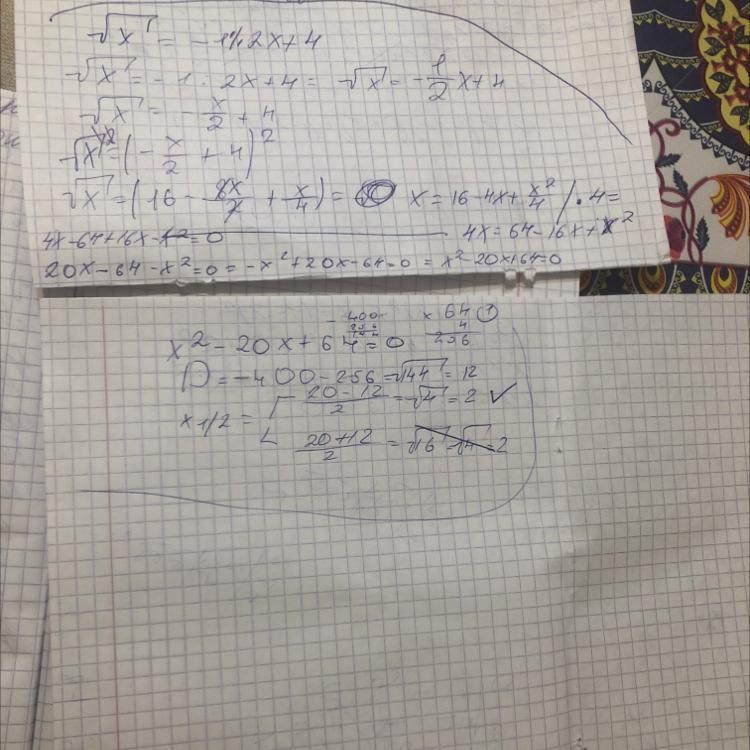 √x = -1/2x+4
√x = -1 : 2x+4 = √x = -1/2 x+4
√x = -x/2 + 4
√x² = (-x/2 + 4)²
√x = (16 - 8x/2 + x/4) = x = 16-4x+x²/4 / · 4 =
4x = 64-16x+x²
4x-64+16x-x²=0
20x-64-x²=0 = -x²+20x-64=0 = x²-20x+64=0
- 400
256
144
× 64
4
256
1
x²-20x+64=0
D=-400-256=√144=12
x1/2 = [ 20-12/2 = √4 = 2 ✓
20+12/2 = √16 √4=2